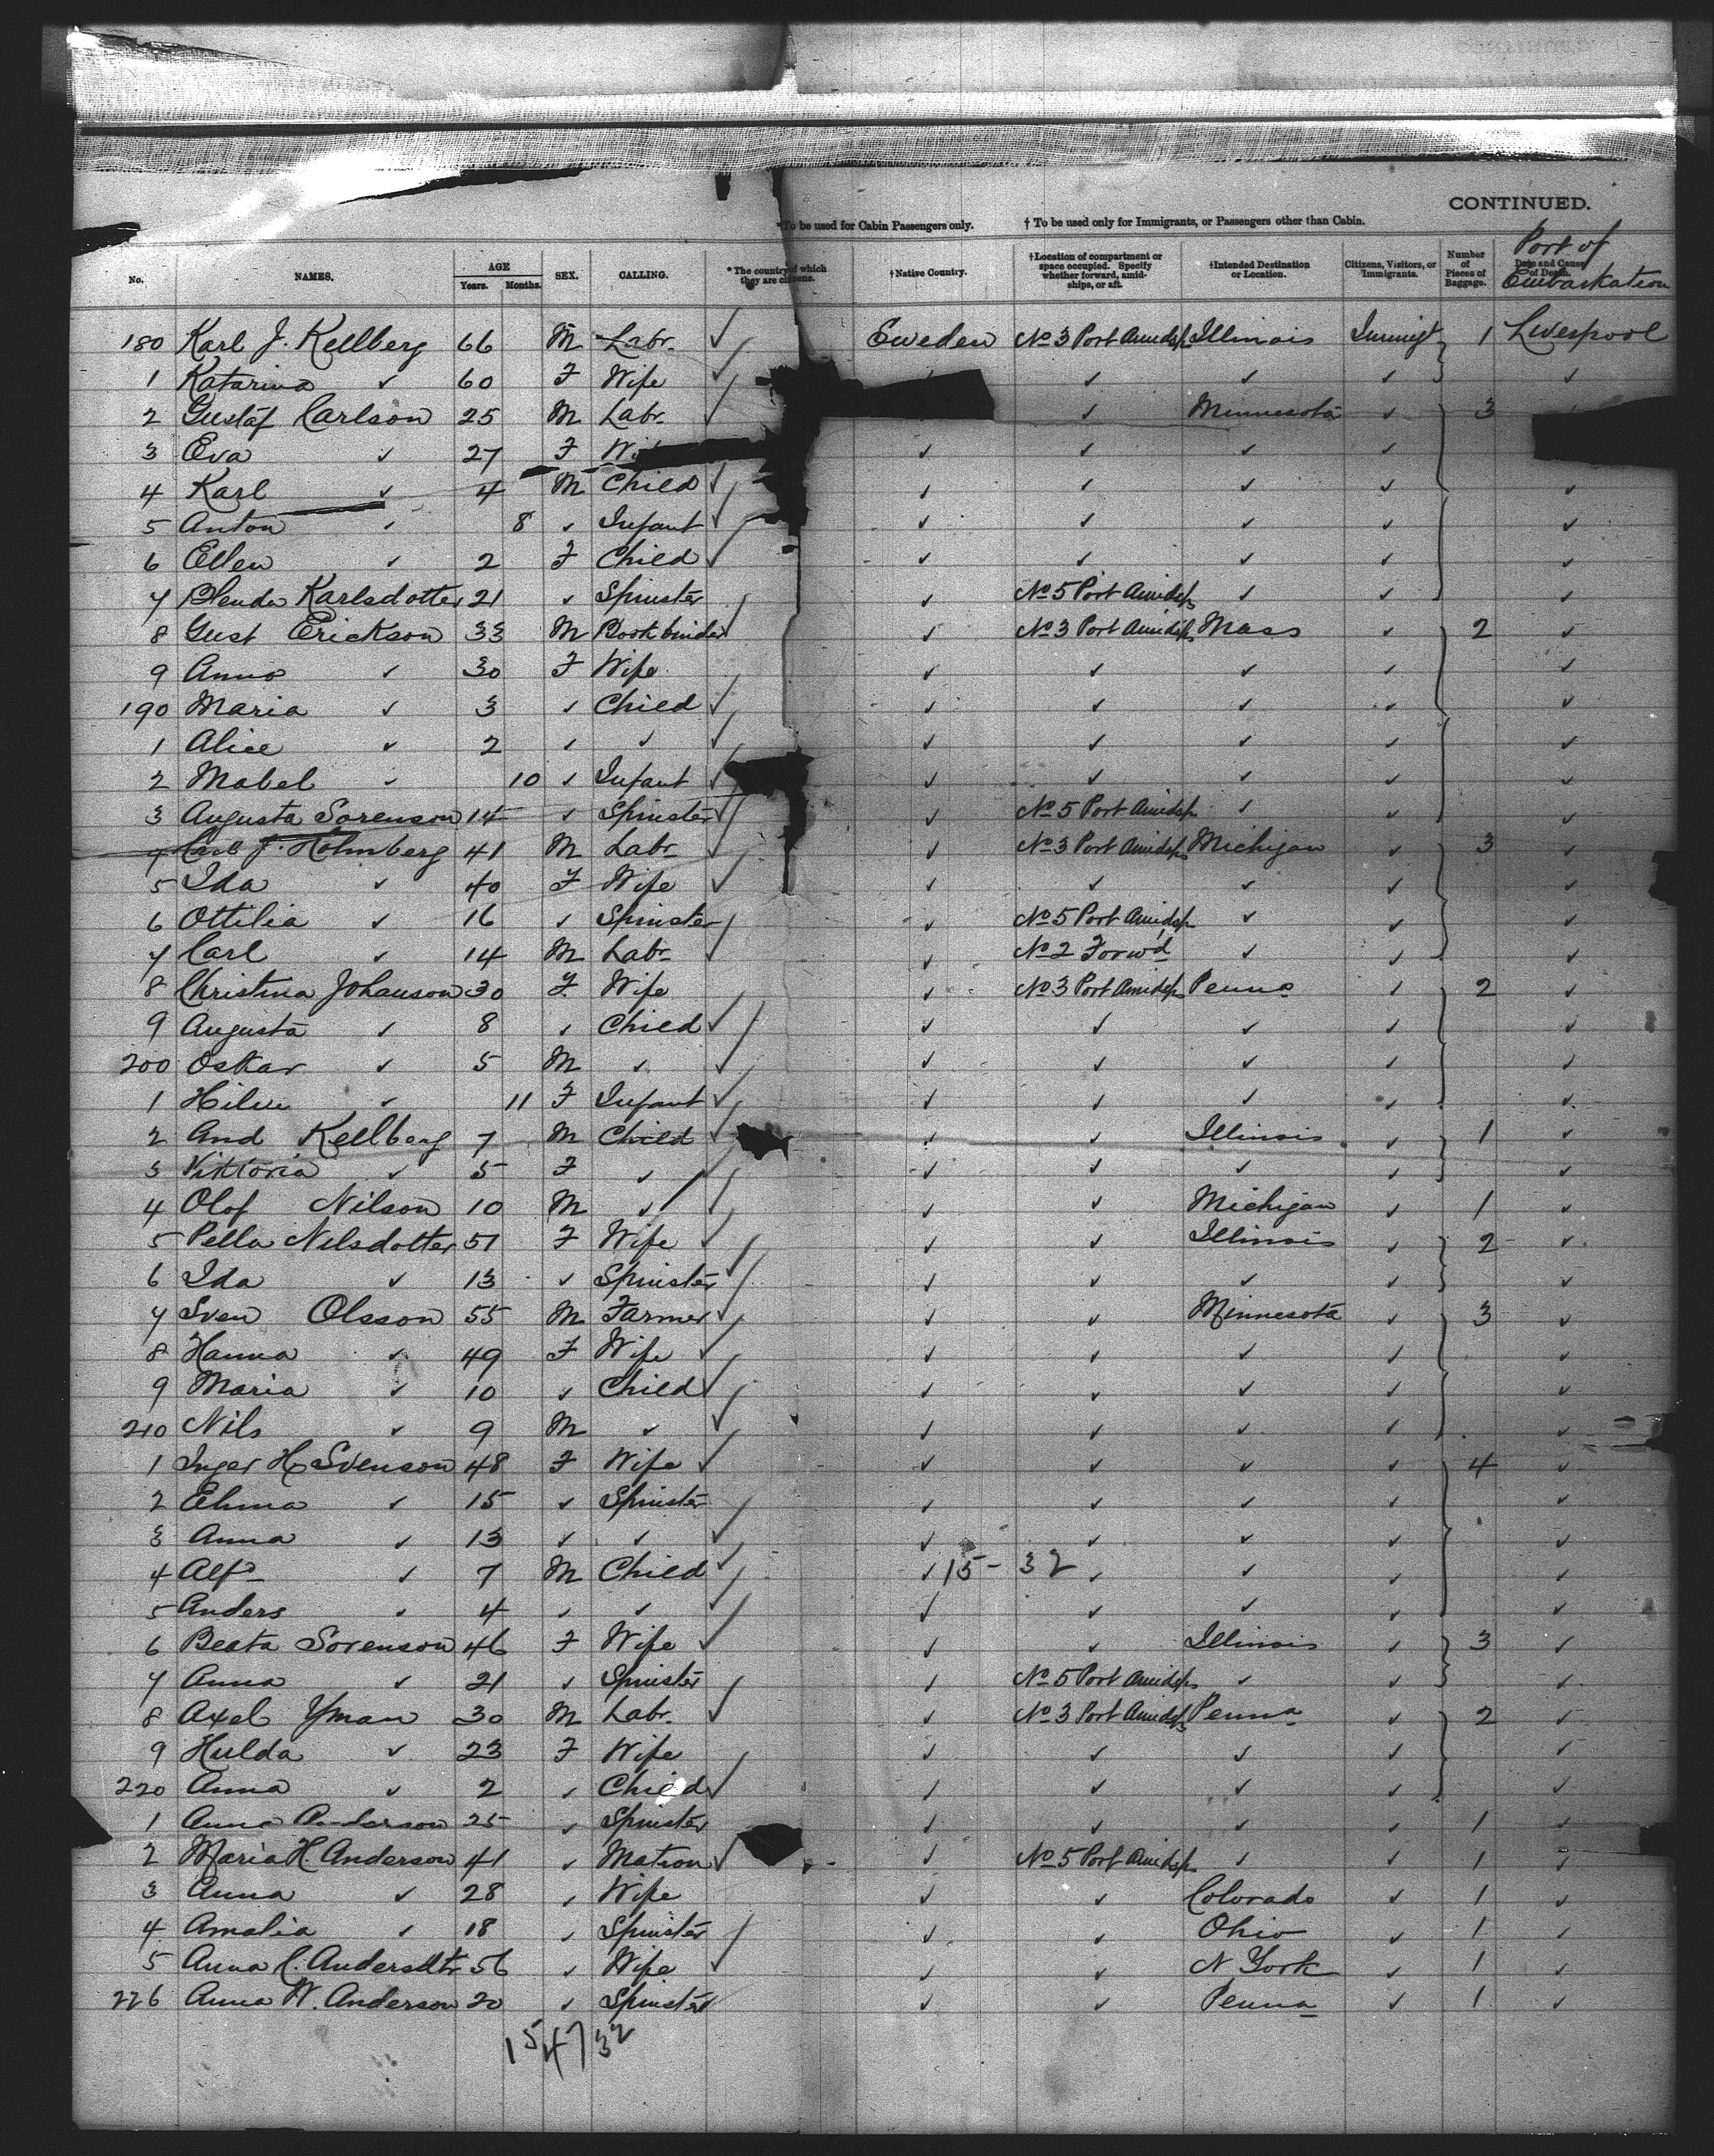 CONTINUED.
*To be used for Cabin Passengers only. † To be used only for Immigrants, or Passengers other than Cabin.
Port of Embarkation
No. NAMES. AGE Years. Months. SEX. CALLING. * The country of which they are citizens. † Native Country. † Location of compartment or space occupied. Specify whether forward, amidships, or aft. † Intended Destination or Location. Citizens, Visitors, or Immigrants. Number of Pieces of Baggage. Date and Cause of Death.
180 Karl J. Kellberg 66 M Labr. ✓ Sweden No 3 Port Amidsps Illinois Immigt 1 Liverpool
1 Katarina ✓ 60 F Wife ✓ ✓ ✓ ✓ ✓
2 Gustaf Carlson 25 M Labr. ✓ ✓ Minnesota ✓ 3
3 Eva ✓ 27 F ✓ ✓ ✓ ✓
4 Karl ✓ 4 M Child ✓ ✓ ✓ ✓ ✓ ✓
5 Anton ✓ 8 ✓ Infant ✓ ✓ ✓ ✓ ✓ ✓
6 Ellen ✓ 2 F Child ✓ ✓ ✓ ✓ ✓ ✓
7 Blenda Karlsdotter 21 ✓ Spinster ✓ No 5 Port Amidsps ✓ ✓ ✓
8 Gust Erickson 33 M Bookbinder ✓ ✓ No 3 Port Amidsps Mass ✓ 2 ✓
9 Anna ✓ 30 F Wife ✓ ✓ ✓ ✓ ✓
190 Maria ✓ 3 ✓ Child ✓ ✓ ✓ ✓ ✓ ✓
1 Alice ✓ 2 ✓ ✓ ✓ ✓ ✓ ✓ ✓ ✓
2 Mabel ✓ 10 ✓ Infant ✓ ✓ ✓ ✓ ✓ ✓
3 Augusta Sorenson 14 ✓ Spinster ✓ ✓ No 5 Port Amidsps ✓ ✓ ✓
4 Carl J. Holmberg 41 M Labr ✓ ✓ No 3 Port Amidsps Michigan ✓ 3 ✓
5 Ida ✓ 40 F Wife ✓ ✓ ✓ ✓ ✓ ✓
6 Ottilia ✓ 16 ✓ Spinster ✓ No 5 Port Amidsp ✓ ✓ ✓
7 Carl ✓ 14 M Labr ✓ ✓ No 2 Forw'd ✓ ✓ ✓
8 Christina Johanson 30 F. Wife ✓ No 3 Port Amidsps Penna ✓ 2 ✓
9 Augusta ✓ 8 ✓ Child ✓ ✓ ✓ ✓ ✓ ✓
200 Oskar ✓ 5 M ✓ ✓ ✓ ✓ ✓ ✓ ✓
1 ✓ 11 F Infant ✓ ✓ ✓ ✓ ✓ ✓
2 And Kellberg 7 M Child ✓ ✓ ✓ Illinois ✓ 1 ✓
3 Viktoria ✓ 5 F ✓ ✓ ✓ ✓ ✓ ✓ ✓
4 Olof Nilson 10 M ✓ ✓ ✓ ✓ Michigan ✓ 1 ✓
5 Pella Nilsdotter 51 F Wife ✓ ✓ ✓ Illinois ✓ 2 ✓
6 Ida ✓ 13 ✓ Spinster ✓ ✓ ✓ ✓ ✓ ✓
7 Sven Olsson 55 M Farmer ✓ ✓ ✓ Minnesota ✓ 3 ✓
8 Hanna ✓ 49 F Wife ✓ ✓ ✓ ✓ ✓ ✓
9 Maria ✓ 10 ✓ Child ✓ ✓ ✓ ✓ ✓ ✓
210 Nils ✓ 9 M ✓ ✓ ✓ ✓ ✓ ✓ ✓
1 Inger H Svenson 48 F Wife ✓ ✓ ✓ ✓ ✓ 4 ✓
2 Elma ✓ 15 ✓ Spinster ✓ ✓ ✓ ✓ ✓
3 Anna ✓ 13 ✓ ✓ ✓ ✓ ✓ ✓ ✓ ✓
4 Alfd ✓ 7 M Child ✓ ✓ 15 - 32 ✓ ✓ ✓ ✓
5 Anders ✓ 4 ✓ ✓ ✓ ✓ ✓ ✓ ✓ ✓
6 Beata Sorenson 46 F Wife ✓ ✓ ✓ Illinois ✓ 3 ✓
7 Anna ✓ 21 ✓ Spinster ✓ No 5 Port Amidsps ✓ ✓ ✓
8 Axel Yman 30 M Labr. ✓ ✓ No 3 Port Amidsps Penna ✓ 2 ✓
9 Hulda ✓ 23 F Wife ✓ ✓ ✓ ✓ ✓
220 Anna ✓ 2 ✓ Child ✓ ✓ ✓ ✓ ✓ ✓
1 Anna 25 ✓ Spinster ✓ ✓ ✓ ✓ 1 ✓
2 Maria H. Anderson 41 ✓ Matron ✓ ✓ No 5 Port Amidsps ✓ ✓ 1 ✓
3 Anna ✓ 28 ✓ Wife ✓ ✓ Colorado ✓ 1 ✓
4 Amalia ✓ 18 ✓ Spinster ✓ ✓ Ohio ✓ 1 ✓
5 Anna C. Andersdtr 56 ✓ Wife ✓ ✓ ✓ N York ✓ 1 ✓
226 Anna W. Anderson 20 ✓ Spinster ✓ ✓ Penna ✓ 1 ✓
15 47 32